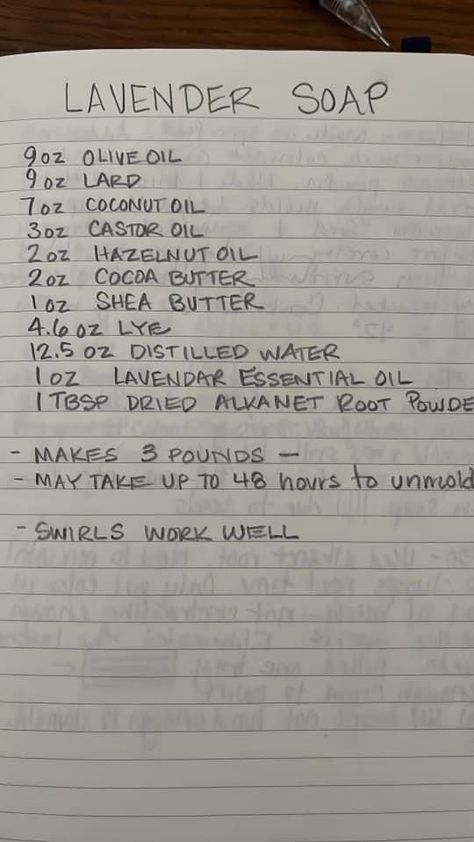 LAVENDER SOAP
9 oz OLIVE OIL
9 oz LARD
7 oz COCONUT OIL
3 oz CASTOR OIL
2 oz HAZELNUT OIL
2 oz COCOA BUTTER
1 oz SHEA BUTTER
4.6 oz LYE
12.5 oz DISTILLED WATER
1 oz LAVENDAR ESSENTIAL OIL
1 TBSP DRIED ALKANET ROOT POWDE
- MAKES 3 POUNDS -
- MAY TAKE UP TO 48 hours to unmold
- SWIRLS WORK WELL